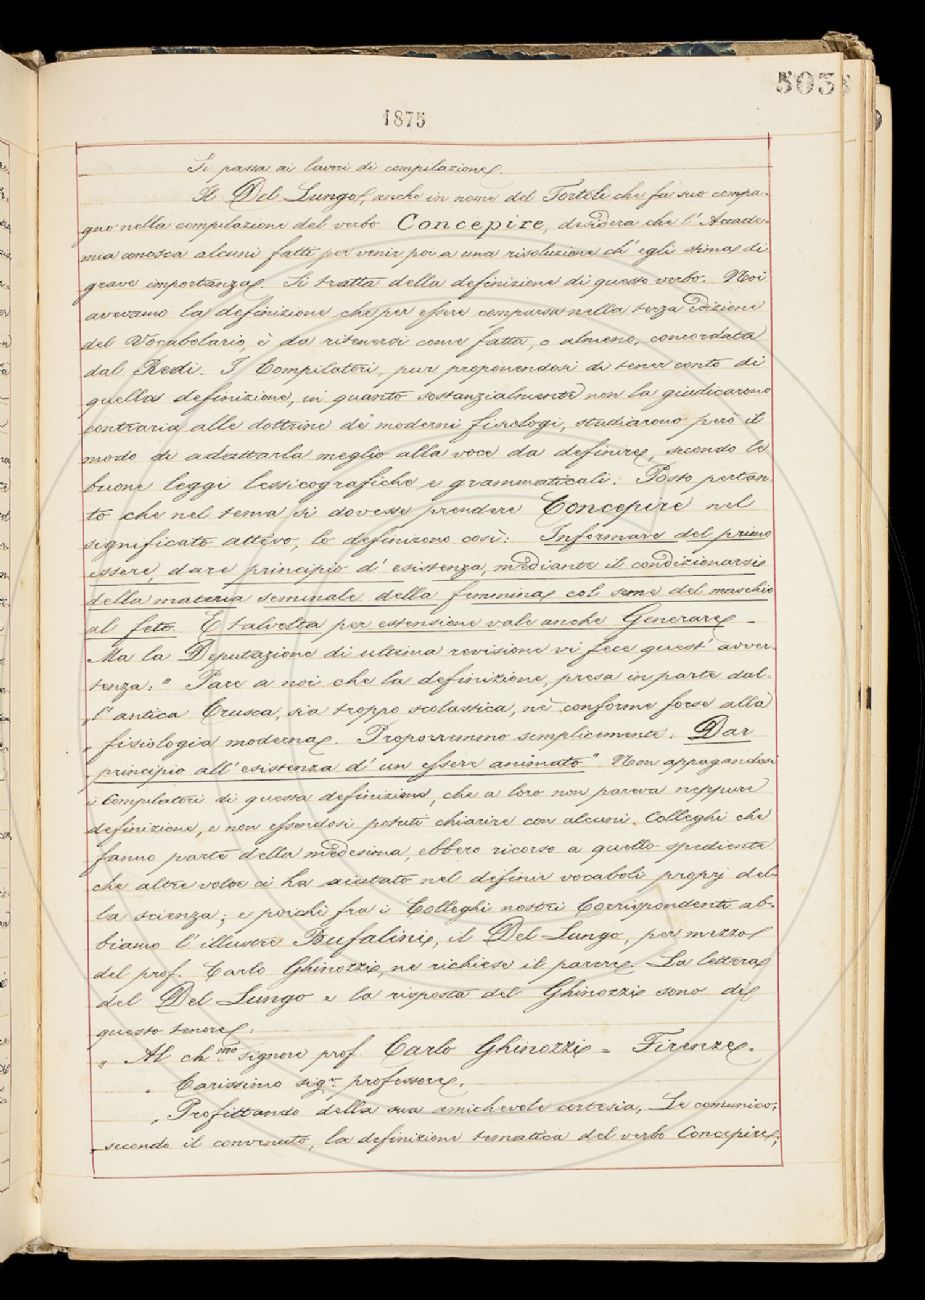 503
1875
Si passa ai lavori di compilazione.
Il Del Lungo, anche in nome del Tortoli che fu suo compa-
gno nella compilazione del verbo Concepire, desidera che l'Accade-
mia conosca alcuni fatti per venir poi a una risoluzione ch'egli stima di
grave importanza. Si tratta della definizione di questo verbo. Noi
avevamo la definizione che per essere comparsa nella terza edizione
del Vocabolario, è da ritenersi come fatta, o almeno, concordata
dal Redi. I Compilatori, pur proponendosi di tener conto di
quella definizione, in quanto sostanzialmente non la giudicarono
contraria alle dottrine de' moderni fisiologi, studiarono però il
modo di adattarla meglio alla voce da definire, secondo le
buone leggi lessicografiche e grammaticali. Posto pertan-
to che nel tema si dovesse prendere Concepire nel
significato attivo, lo definirono così: Informare del primo
essere, dare principio d'esistenza, mediante il condizionarsi
della materia seminale della femmina col seme del maschio
al feto. E talvolta per estensione vale anche Generare. -
Ma la Deputazione di ultima revisione vi fece quest'avver-
tenza: " Pare a noi che la definizione, presa in parte dal-
„ l'antica Crusca, sia troppo scolastica, nè conforme forse alla
„ fisiologia moderna. Proporremmo semplicemente: Dar
„ principio all'esistenza d'un essere animato" Non appagandosi
i Compilatori di questa definizione, che a loro non pareva neppure
definizione, e non essendosi potuti chiarire con alcuni Colleghi che
fanno parte della medesima, ebbero ricorso a quello spediente
che altre volte ci ha aiutato nel definir vocaboli proprj del-
la scienza; e poichè fra i Colleghi nostri Corrispondenti ab-
biamo l'illustre Bufalini, il Del Lungo, per mezzo
del prof. Carlo Ghinozzi, ne richiese il parere. La lettera
del Del Lungo e la risposta del Ghinozzi sono di
questo tenore:
„ Al ch.mo signore prof. Carlo Ghinozzi = Firenze.
„ Carissimo sig.r professore,
„ Profittando della sua amichevole cortesia, Le comunico,
„ secondo il convenuto, la definizione tematica del verbo Concepire,